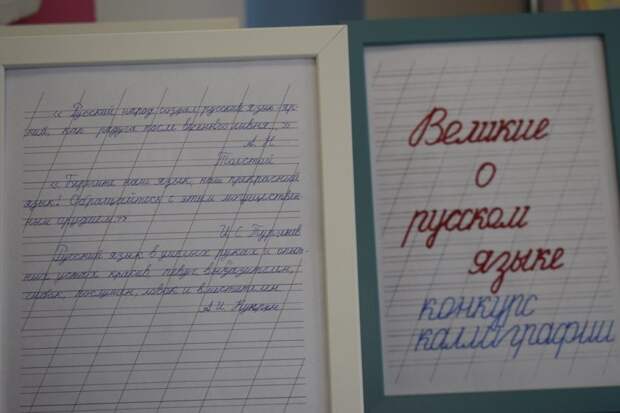 « Русский народ создал русский язык яр-
кий, как радуга после весеннего ливня, »
А. Н
Толстой
« Берегите наш язык, наш прекрасный
язык! Обращайтесь с этим могуществен-
ным орудием.»
И. С. Тургенев
Русский язык в умелых руках и опыт-
ных устах красив, певуч, выразителен,
гибок, послушен, ловок и вместителен
А. И. Куприн
Великие
о
русском
языке
конкурс
каллиграфии